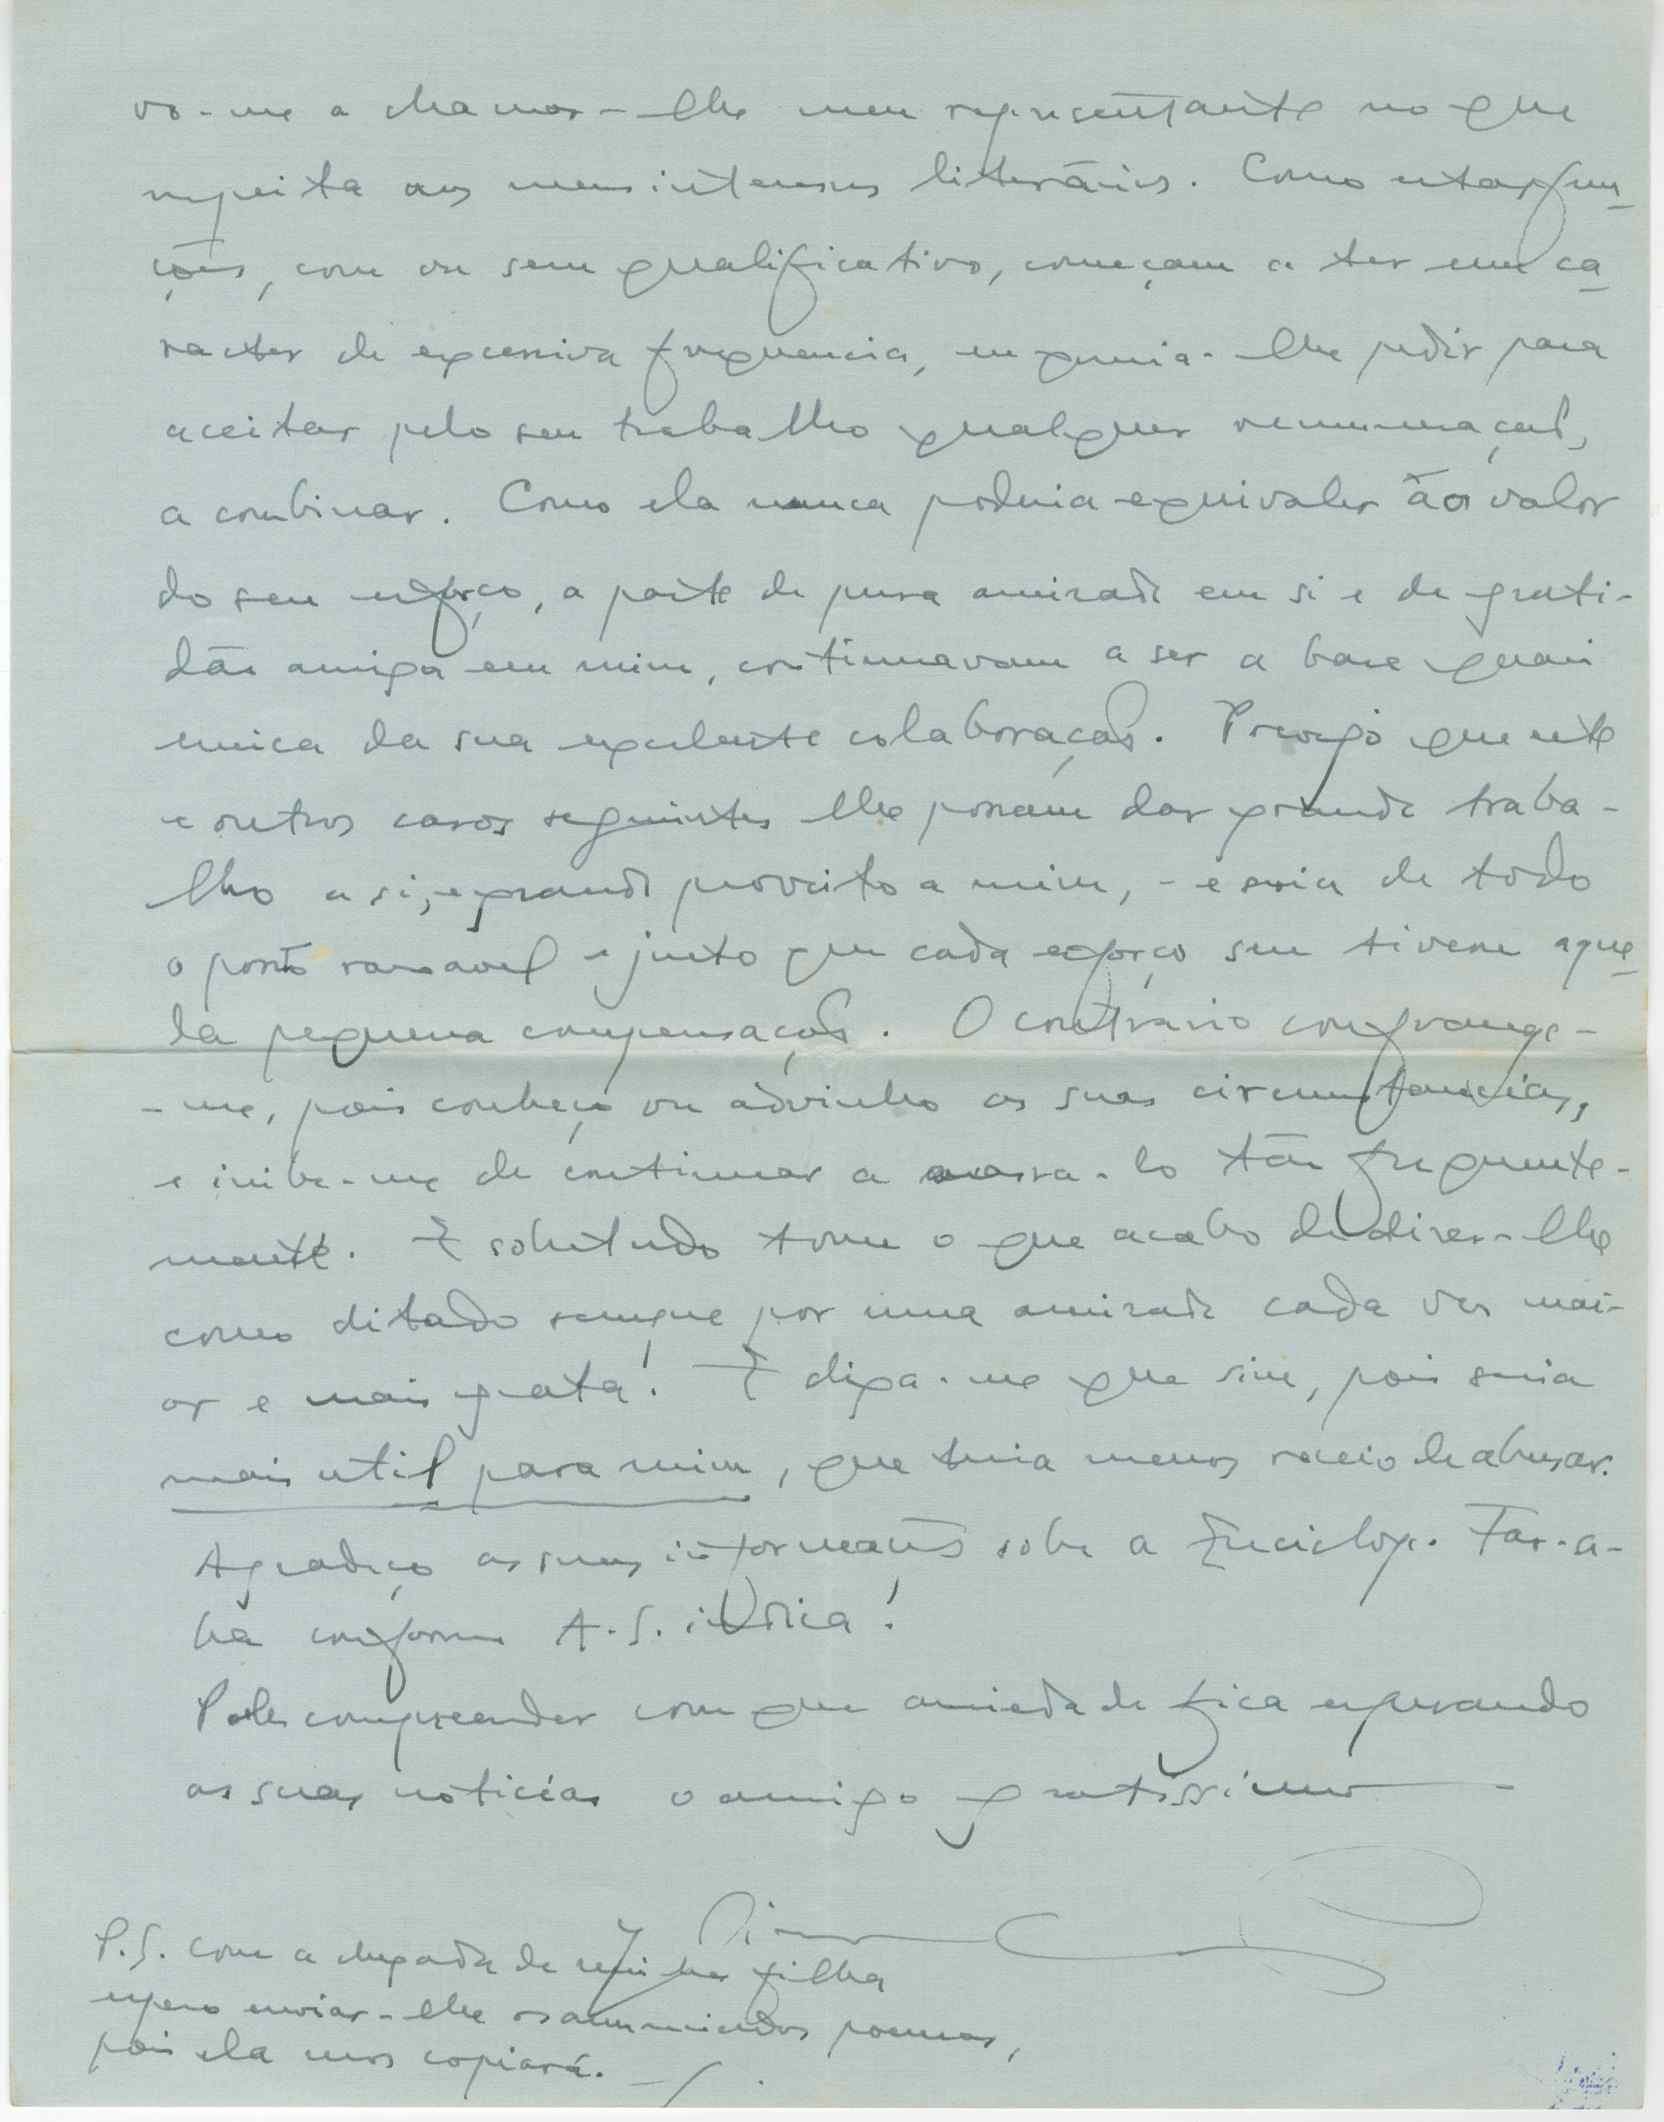 vo-me a chamar-lhe meu representante no que
respeita aos meus interesses literários. Como estas fun-
ções, com ou sem qualificativo, começam a ter um ca-
racter de excessiva frequencia, eu queria-lhe pedir para
aceitar pelo seu trabalho qualquer remuneração,
a combinar. Como ela nunca poderia equivaler ao valor
do seu esforço, a parte de pura amizade em si e de grati-
dão amiga em mim, continuavam a ser a base quasi
unica da sua excelente colaboração. Prevejo que este
e outros casos seguintes lhe possam dar grande traba-
lho a si, e grande proveito a mim, - e seria de todo
o ponto razoavel e justo que cada esforço seu tivesse aque-
la pequena compensação. O contrário confrange-
-me, pois conheço ou advinho as suas circunstancias,
e inibe-me de continuar a massa-lo tão frequente-
mente. E sobretudo tome o que acabo de dizer-lhe
como ditado sempre por uma amizade cada vez mai-
or e mais grata! E diga-me que sim, pois seria
mais util para mim, que teria menos receio de abusar.
Agradeço as suas informações sobre a Enciclop. Far-a-
ha conforme A. S. indica!
Pode compreender com que anciedade fica esperando
as suas noticias o amigo gratissimo
P.S. Com a chegada de minha filha
espero enviar-lhe os anunciados poemas,
pois ela mos copiará.